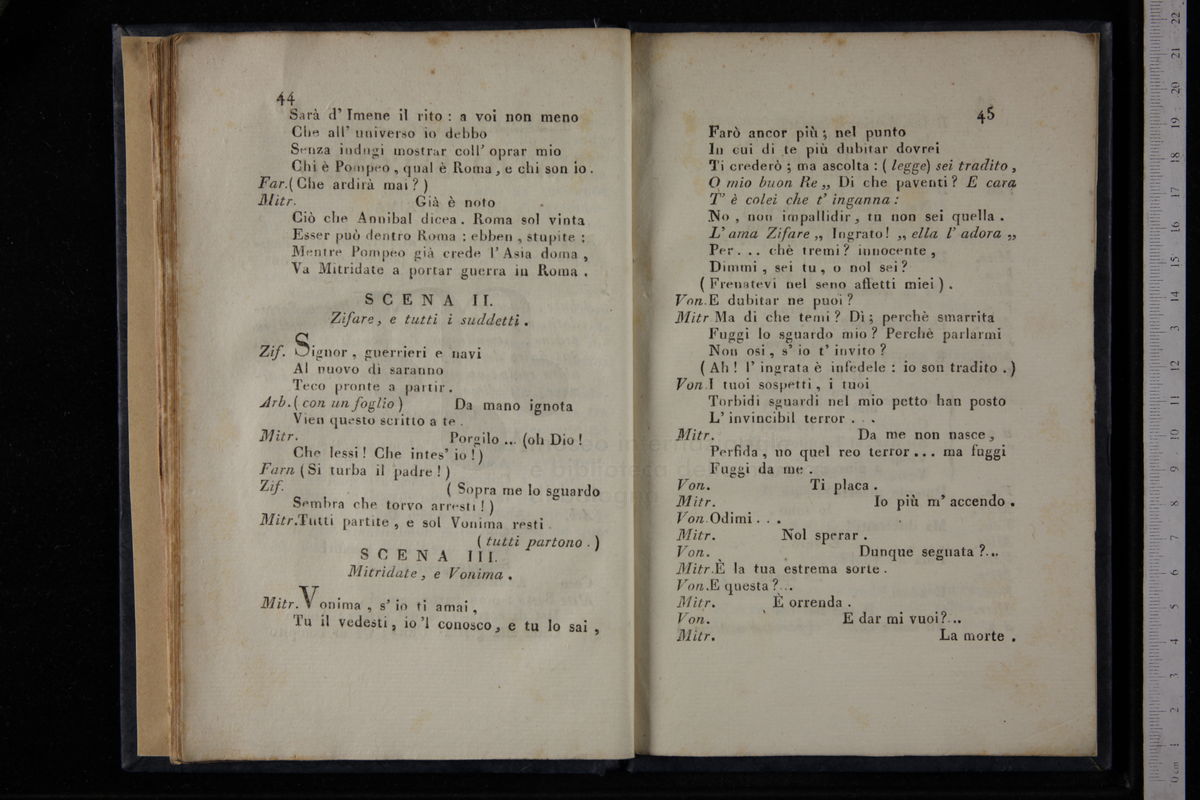 44
Sarà d' Imene il rito : a voi non meno
Che all' universo io debbo
Senza indugi mostrar coll' oprar mio
Chi è Pompeo , qual è Roma , e chi son io .
Far.( Che ardirà mai ? )
Mitr. Già è noto
Ciò che Annibal dicea . Roma sol vinta
Esser può dentro Roma : ebben , stupite ;
Mentre Pompeo già crede l' Asia doma ,
Va Mitridate a portar guerra in Roma .
SCENA II.
Zifare , e tutti i suddetti .
Zif. Signor , guerrieri e navi
Al nuovo dì saranno
Teco pronte a partir .
Arb.( con un foglio ) Da mano ignota
Vien questo scritto a te .
Mitr. Porgilo ... (oh Dio !
Che lessi ! Che intes' io ! )
Farn ( Si turba il padre ! )
Zif. ( Sopra me lo sguardo
Sembra che torvo arresti ! )
Mitr.Tutti partite , e sol Vonima resti .
( tutti partono . )
SCENA III.
Mitridate , e Vonima .
Mitr. Vonima , s' io ti amai ,
Tu il vedesti , io 'l conosco , e tu lo sai ,
45
Farò ancor più ; nel punto
In cui di te più dubitar dovrei
Ti crederò ; ma ascolta : ( legge) sei tradito ,
O mio buon Re „ Di che paventi ? E cara
T' è colei che t' inganna :
No , non impallidir , tu non sei quella .
L' ama Zifare „ Ingrato ! „ ella l' adora „
Per . . . chè tremi ? innocente ,
Dimmi , sei tu , o nol sei ?
( Frenatevi nel seno affetti miei ) .
Von.E dubitar ne puoi ?
Mitr Ma di che temi ? Dì ; perchè smarrita
Fuggi lo sguardo mio ? Perchè parlarmi
Non osi , s' io t' invito ?
( Ah ! l' ingrata è infedele : io son tradito . )
Von I tuoi sospetti , i tuoi
Torbidi sguardi nel mio petto han posto
L' invincibil terror . . .
Mitr. Da me non nasce ,
Perfida , no quel reo terror ... ma fuggi
Fuggi da me .
Von. Ti placa .
Mitr. Io più m' accendo .
Von Odimi . . .
Mitr. Nol sperar .
Von. Dunque segnata ?...
Mitr.È la tua estrema sorte .
Von.E questa ?...
Mitr. È orrenda .
Von. E dar mi vuoi?...
Mitr. La morte .